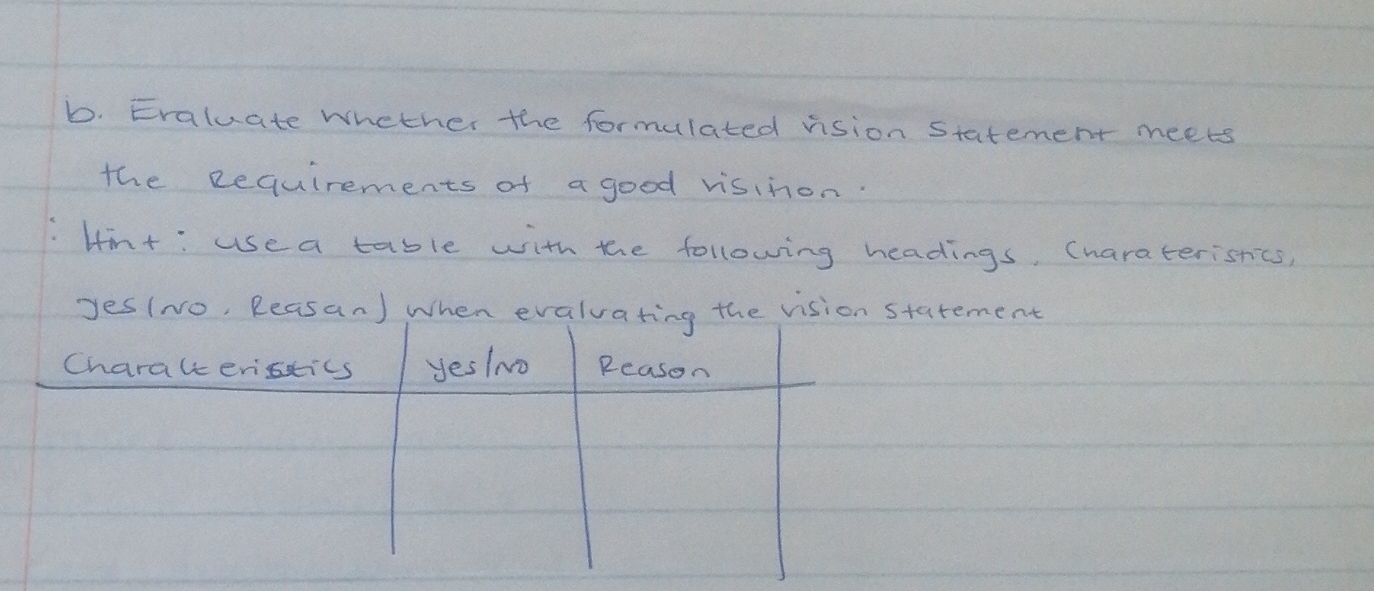 b. Evaluate whether the formulated vision statement meets
the Requirements of a good visinon.
: Hint: use a table with the following headings. Charateristics,
yes(No, Reasan) when evaluating the vision statement
Characteristics yes/No Reason